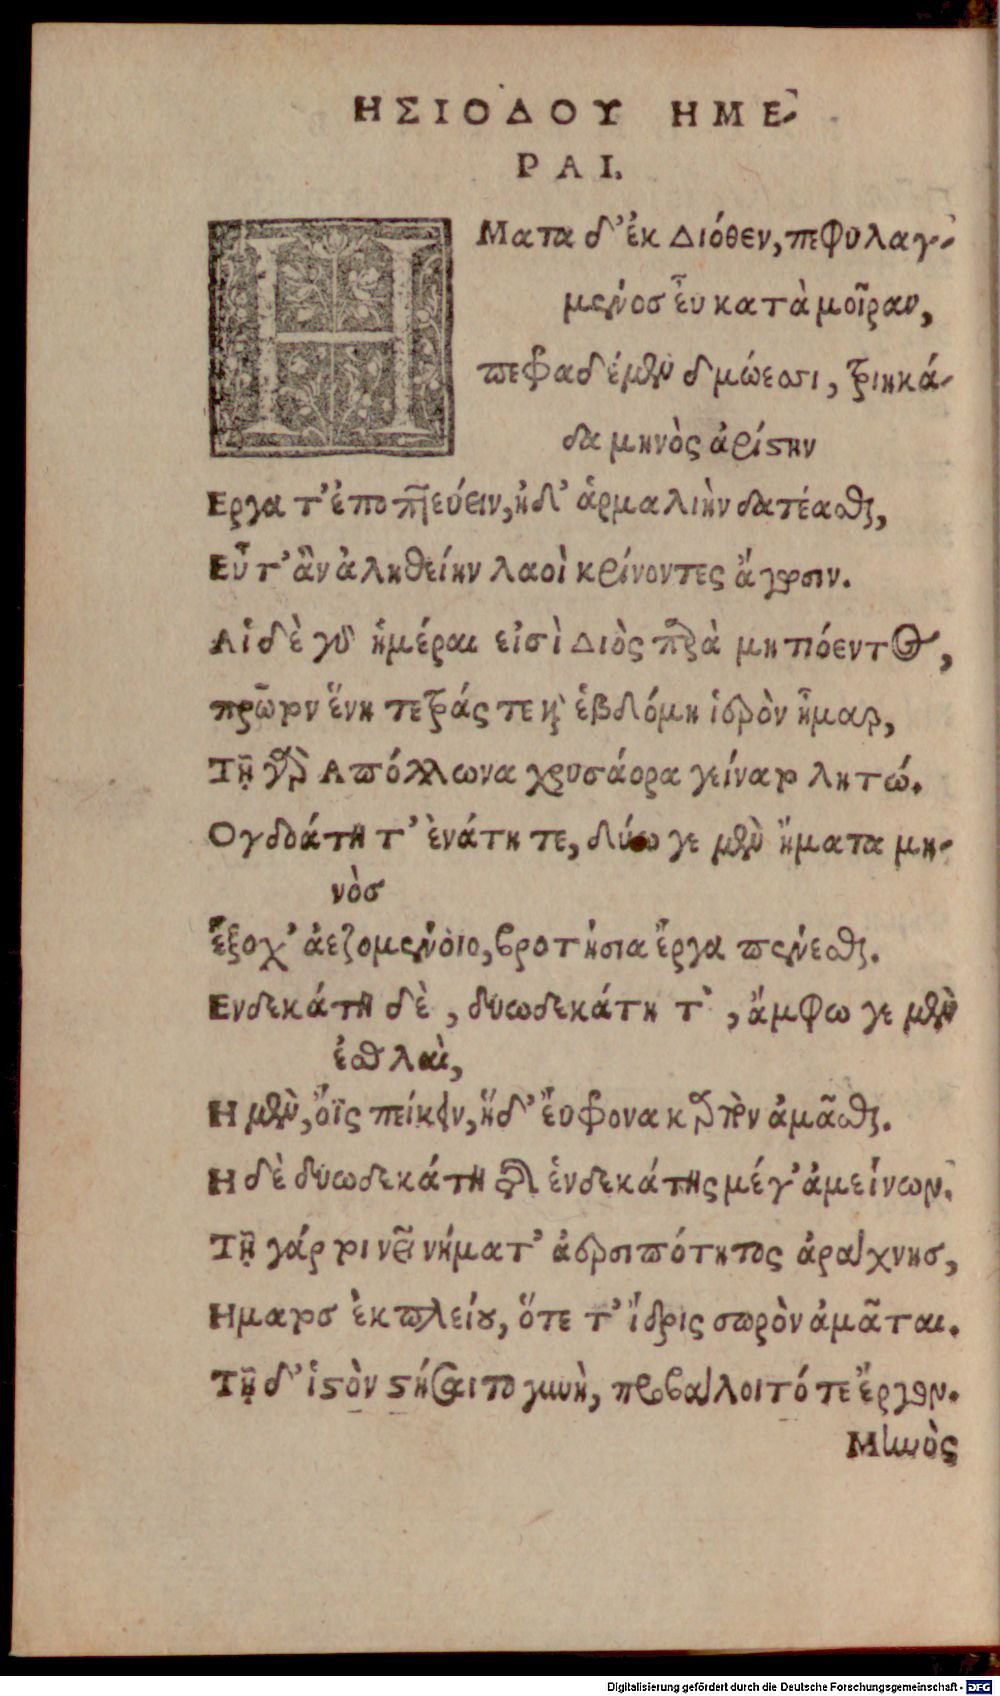 ΗΣΙΟΔΟΥ ΗΜΕ-
ΡΑΙ.
ΗΜατα δ' ἐκ Διόθεν, πεφυλαγ-
μένοσ εὖ κατὰ μοῖραν,
πεφραδέμεν δμώεσσι, τριηκά-
δα μηνὸς ἀρίστην
Εργα τ' ἐποπτεύειν, ἠδ' ἁρμαλιὴν δατέασθαι,
Εὖτ' ἂν ἀληθείην λαοὶ κρίνοντες ἄγωσιν.
Αἱ δὲ γὰρ ἡμέραι εἰσὶ Διὸς παρὰ μητιόεντος,
πρῶτον ἕνη τετράς τε καὶ ἑβδόμη ἱερὸν ἦμαρ,
Τῇ γὰρ Απόλλωνα χρυσάορα γείνατο λητώ.
Ογδοάτη τ' ἐνάτη τε, δύω γε μὲν ἤματα μη-
νὸσ
ἔξοχ' ἀεζομένοιο, βροτήσια ἔργα πένεσθαι.
Ενδεκάτη δὲ, δυωδεκάτη τ', ἄμφω γε μὲν
ἐσθλαὶ,
Η μὲν, ὄϊς πείκειν, ἥδ' εὔφρονα καρπὸν ἀμᾶσθαι.
Η δὲ δυωδεκάτη τῆς ἑνδεκάτης μέγ' ἀμείνων.
Τῇ γάρ τοι νεῖ νήματ' ἀερσιπότητος ἀράχνησ,
Ηματοσ ἐκ πλείου, ὅτε τ' ἴδρις σωρὸν ἀμᾶται.
Τῇ δ' ἱστὸν στήσαιτο γυνὴ, προβάλοιτό τε ἔργον.
Μηνὸς
Digitalisierung gefördert durch die Deutsche Forschungsgemeinschaft - DFG